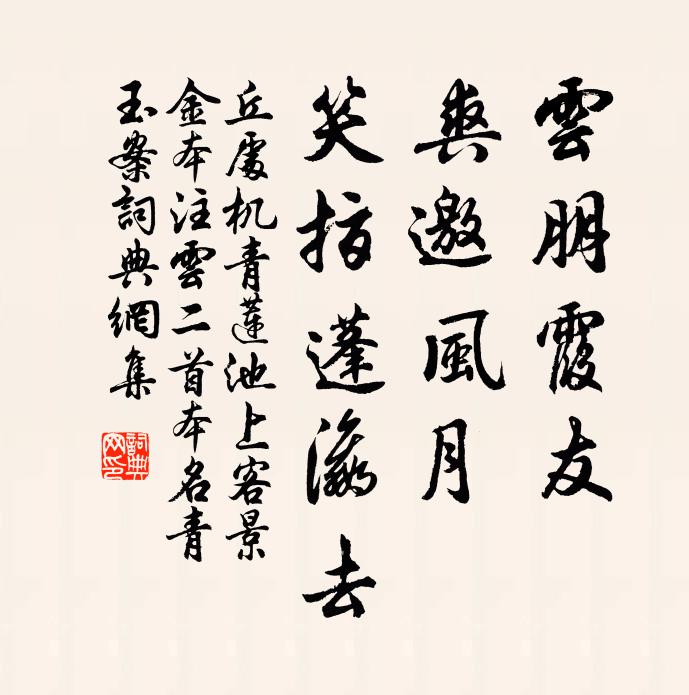 雲朋霞友
爽邀風月
笑指蓬瀛去
丘處机青蓮池上客景
金本注雲二首本名青
玉案詞典網集
詞典网印